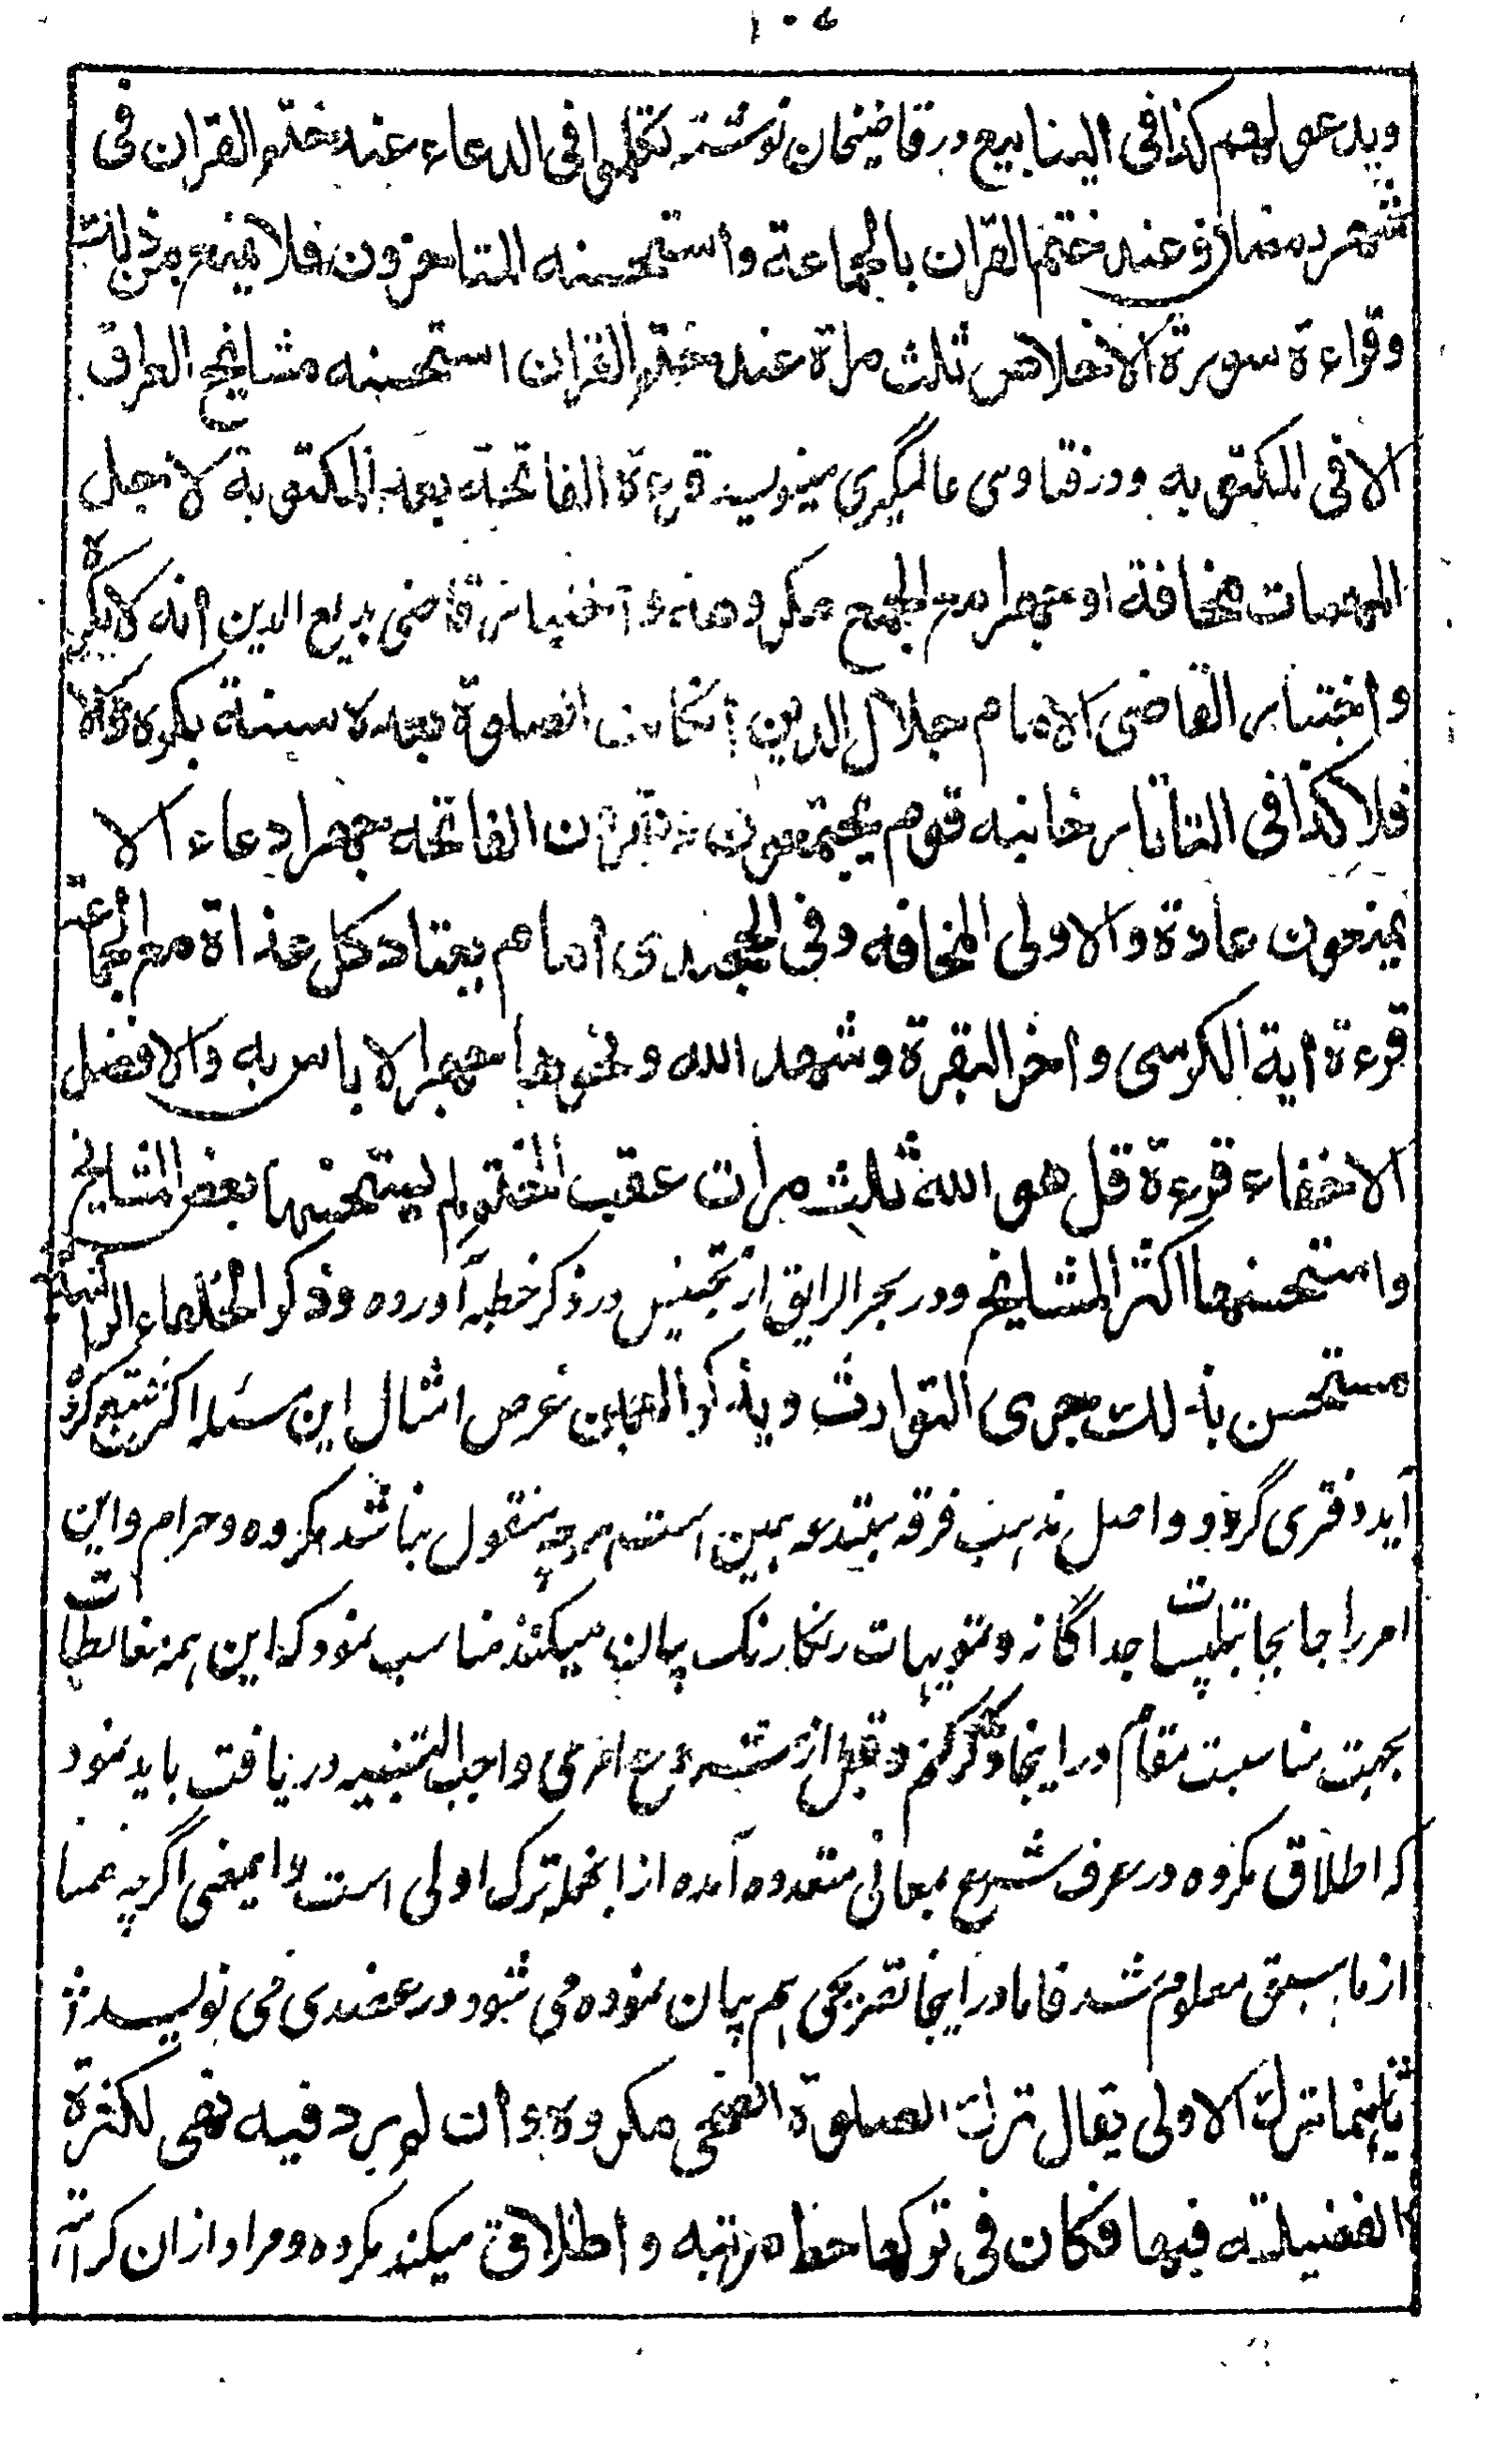 ۱۰۵
ویدعو لهم کذا فی الینابیع ودر قاضیخان نوشته تکلموا فی الدعاء عند ختم القران فی
شهر رمضان وعند ختم القران بالجماعة واستحسنه المتاخرون فلا یمنع من ذلك
وقراءة سورة الاخلاص ثلث مراة عند ختم القران استحسنه مشایخ العراق
الا فی المکتوبه ودر فتاوی عالمگیری مینویسد قرءة الفاتحه بعد المکتوبة لاجل
المهمات مخافة او جهرا مع الجمع مکروهة واختیار قاضی بدیع الدین انه لایکره
واختیار القاضی الامام جلال الدین انکانت الصلوة بعده سنة یکره والا
فلا کذا فی التاتارخانیه قوم یجتمعون ویقرؤن الفاتحه جهرا دعاء الا
یمنعون عادة والاولی المخافه وفی الخجندی امام یعتاد کل غداة مع الجماعته
قرءة اٰیة الکرسی واخر البقرة وشهد الله ونحوها جهرا لا باس به والافضل
الاخفاء قرءة قل هو الله ثلث مرات عقب الختم لم یستحسنها بعض المشایخ
واستحسنها اکثر المشایخ ودر بحر الرایق از تجنیس در ذکر خطبه آورده وذکر الخلفاء الراشدین
مستحسن بذلك جری التوارث ویذکر العمین غرض امثال این مسئله اگر تتبع کرده
آید دفتری گردد واصل مذهب فرقه مبتدعه همین است هرچه منقول نباشد مکروه وحرام واین
امر را جابجا بتلبیسات جداگانه وتمویهات رنگارنگ بیان میکنند مناسب نمود که این همه مغالطات
بجهت مناسبت مقام در اینجا ذکر کنم وقبل از شروع امری واجب التنبیه دریافت باید نمود
که اطلاق مکروه در عرف شرع بمعانی متعدده آمده ازانجمله ترک اولی است وایمعنی اگرچه ضمنا
از ما سبق معلوم شد فاما در اینجا تصریحی هم بیان نموده می شود در عضدی می نویسد
ثانیهما ترك الاولی یقال ترك الصلوة الضحی مکروه وان لم یرد فیه نهی لکثرة
الفضیلة فیها فکان فی ترکها حط مرتبه واطلاق میکنند مکروه ومراد ازان کراهت